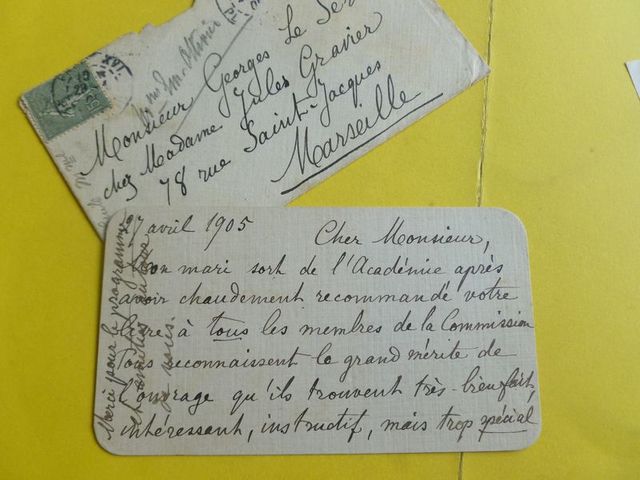 Monsieur Georges Le
chez Madame Jules Gravier
78 rue Saint-Jacques
Marseille
27 avril 1905
Cher Monsieur,
Mon mari sort de l'Académie après
avoir chaudement recommandé votre
livre à tous les membres de la Commission
Tous reconnaissent le grand mérite de
l'ouvrage qu'ils trouvent très bien fait,
intéressant, instructif, mais trop spécial
Merci pour le programme
à vous.